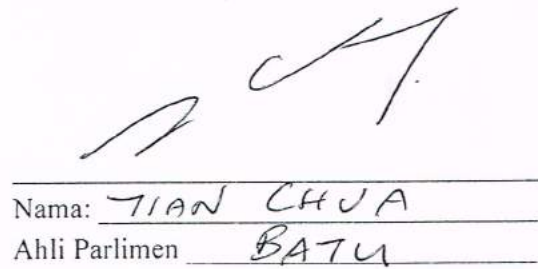 Nama: TIAN CHUA
Ahli Parlimen BATU